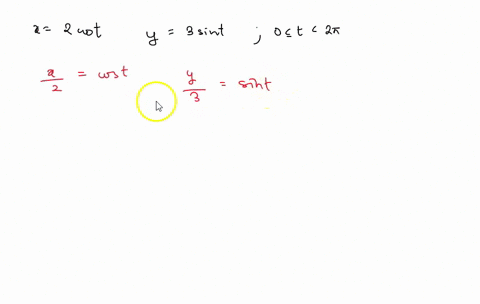 x = 2 cost y = 3 sint ; 0 ≤ t < 2π
x/2 = cost y/3 = sint